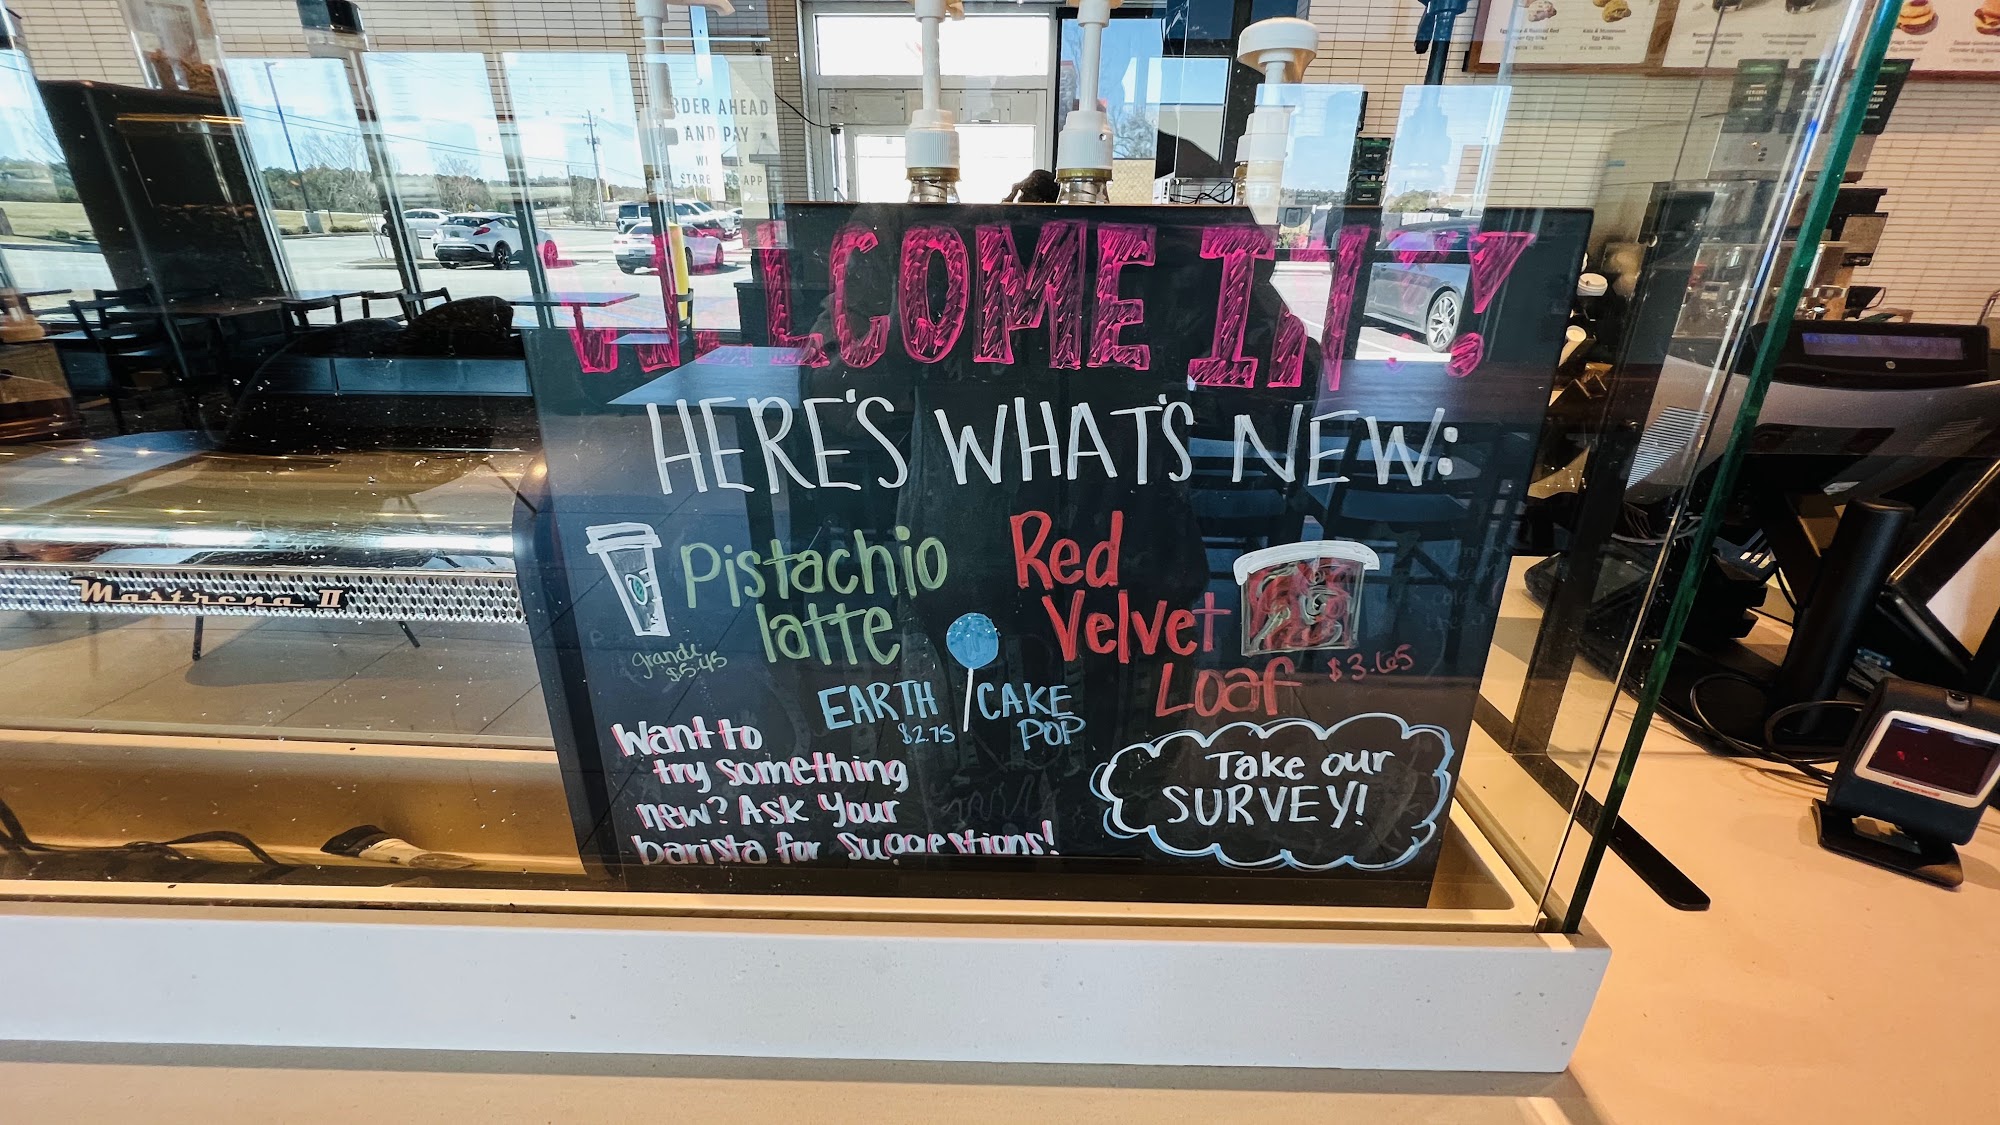 ORDER AHEAD
AND PAY
APP
WELCOME IN!
HERE'S WHAT'S NEW:
Pistachio
latte
grande
$5.45
Red
Velvet
Loaf
$3.65
EARTH CAKE
POP
$2.75
Want to
try something
new? Ask your
barista for suggestions!
Take our
SURVEY!
Mastrena II